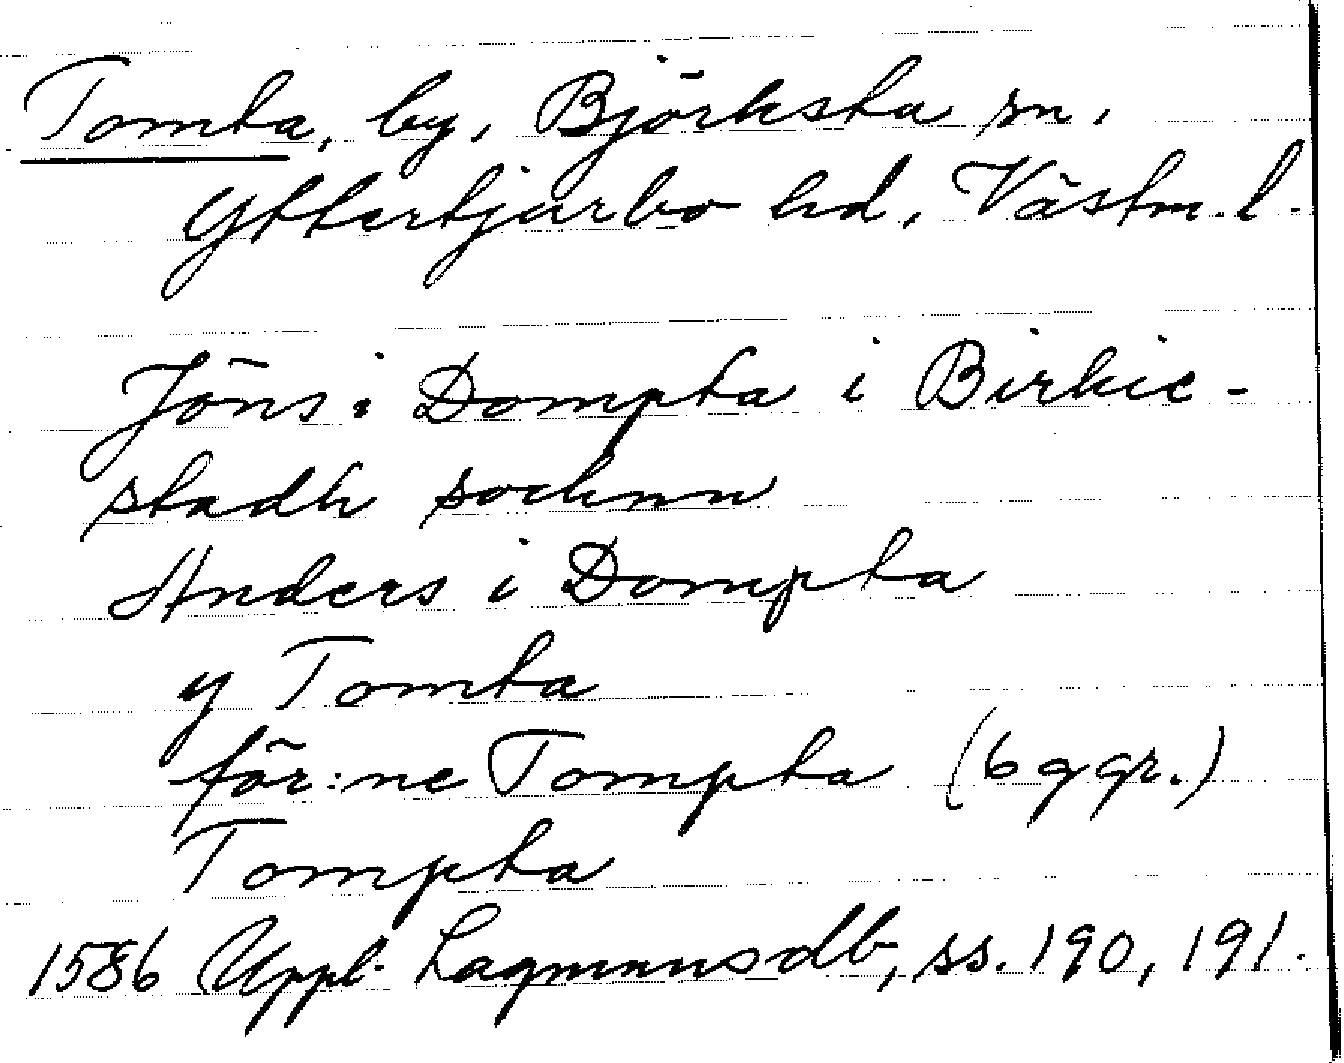 Tomta, by, Björksta sn,
Yttertjurbo hd, Västm. l.
Jöns i Dompta i Birkie-
stadh sochnn
Anders i Dompta
y Tomta
för:ne Tompta (6 ggr.)
Tompta
1586 Uppl. Lagmansdb, ss. 190, 191.